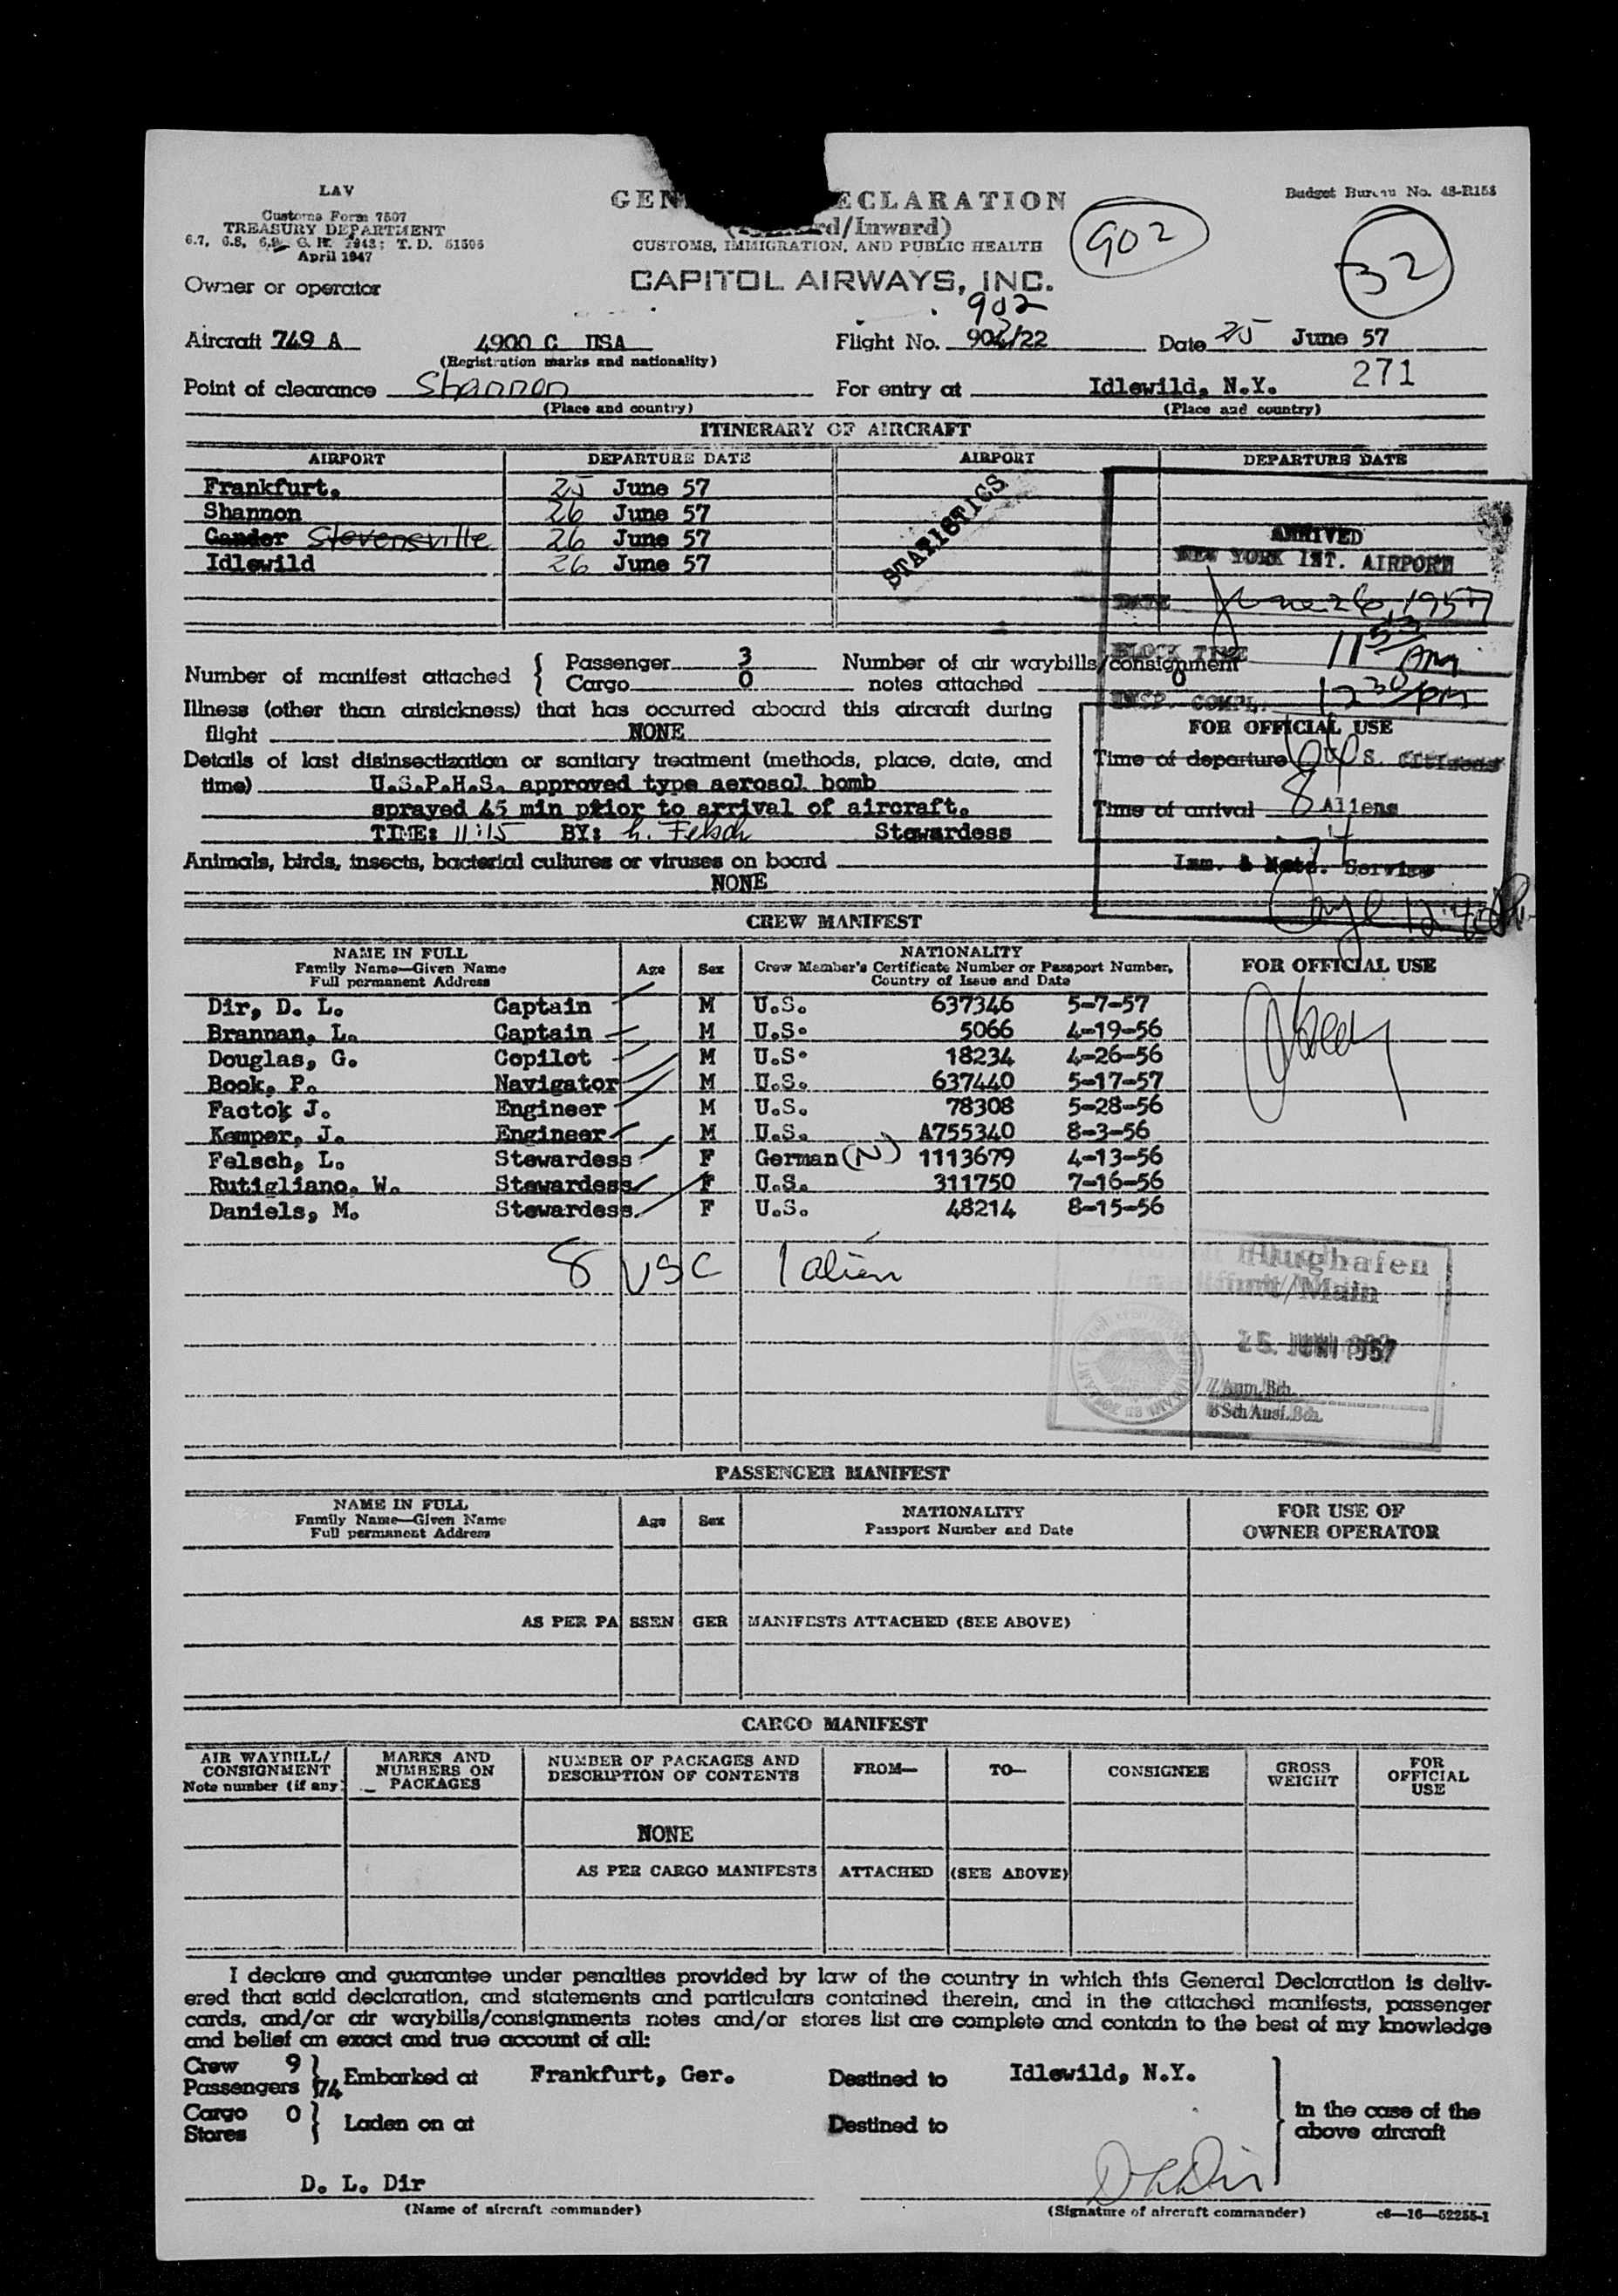 LAV
Customs Form 7507
TREASURY DEPARTMENT
6.7, 6.8, 6.9, C. R. 1943; T. D. 51595
April 1947
GEN ECLARATION
rd/Inward)
CUSTOMS, IMMIGRATION, AND PUBLIC HEALTH
Budget Bureau No. 48-R158
902
32
Owner or operator CAPITOL AIRWAYS, INC.
902
Aircraft 749 A 4900 C USA Flight No. 902/22 Date 25 June 57
(Registration marks and nationality)
271
Point of clearance Shannon For entry at Idlewild, N.Y.
(Place and country) (Place and country)
ITINERARY OF AIRCRAFT
AIRPORT DEPARTURE DATE AIRPORT DEPARTURE DATE
Frankfurt. 25 June 57
Shannon 26 June 57
Gander Stevensville 26 June 57
Idlewild 26 June 57
STATISTICS
ARRIVED
NEW YORK INT. AIRPORT
DATE June 26, 1957
BLOCK TIME 11 53 AM
INSP. COMPL. 12 30 pm
Number of manifest attached { Passenger 3 Number of air waybills/consignment
Cargo 0 notes attached 0
Illness (other than airsickness) that has occurred aboard this aircraft during
flight NONE
Details of last disinsectization or sanitary treatment (methods, place, date, and
time) U.S.P.H.S. approved type aerosol bomb
sprayed 45 min prior to arrival of aircraft.
TIME: 11:15 BY: L. Felsch Stewardess
FOR OFFICIAL USE
Time of departure U. S. Citizens
Time of arrival 8 Aliens
74
Imm. & Natz. Service
Animals, birds, insects, bacterial cultures or viruses on board
NONE
CREW MANIFEST
NAME IN FULL
Family Name—Given Name
Full permanent Address
Age
Sex
NATIONALITY
Crew Member's Certificate Number or Passport Number,
Country of Issue and Date
FOR OFFICIAL USE
Dir, D. L. Captain M U.S. 637346 5-7-57
Brannan, L. Captain M U.S. 5066 4-19-56
Douglas, G. Copilot M U.S. 18234 4-26-56
Book, P. Navigator M U.S. 637440 5-17-57
Factok J. Engineer M U.S. 78308 5-28-56
Kemper, J. Engineer M U.S. A755340 8-3-56
Felsch, L. Stewardess F German (N) 1113679 4-13-56
Rutigliano, W. Stewardess F U.S. 311750 7-16-56
Daniels, M. Stewardess. F U.S. 48214 8-15-56
8 USC 1 alien
Flughafen
Frankfurt/Main
25. JUNI 1957
PASSENGER MANIFEST
NAME IN FULL
Family Name—Given Name
Full permanent Address
Age
Sex
NATIONALITY
Passport Number and Date
FOR USE OF
OWNER OPERATOR
AS PER PASSENGER MANIFESTS ATTACHED (SEE ABOVE)
CARGO MANIFEST
AIR WAYBILL/
CONSIGNMENT
Note number (if any)
MARKS AND
NUMBERS ON
PACKAGES
NUMBER OF PACKAGES AND
DESCRIPTION OF CONTENTS
FROM—
TO—
CONSIGNEE
GROSS
WEIGHT
FOR
OFFICIAL
USE
NONE
AS PER CARGO MANIFESTS ATTACHED (SEE ABOVE)
I declare and guarantee under penalties provided by law of the country in which this General Declaration is deliv-
ered that said declaration, and statements and particulars contained therein, and in the attached manifests, passenger
cards, and/or air waybills/consignments notes and/or stores list are complete and contain to the best of my knowledge
and belief an exact and true account of all:
Crew 9
Passengers 74 } Embarked at Frankfurt, Ger. Destined to Idlewild, N.Y.
Cargo 0
Stores } Laden on at Destined to
in the case of the
above aircraft
D. L. Dir D L Dir
(Name of aircraft commander) (Signature of aircraft commander) c6—16—52255-1